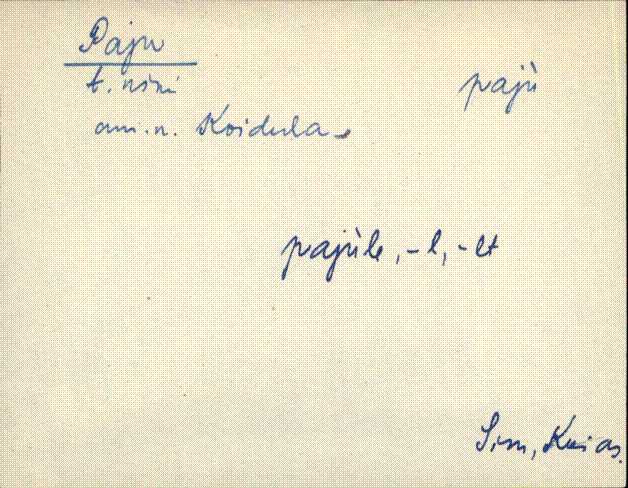 Paju
t. nimi
am. n. Koidula
pajù
pajùle, -l, -lt
Sim,